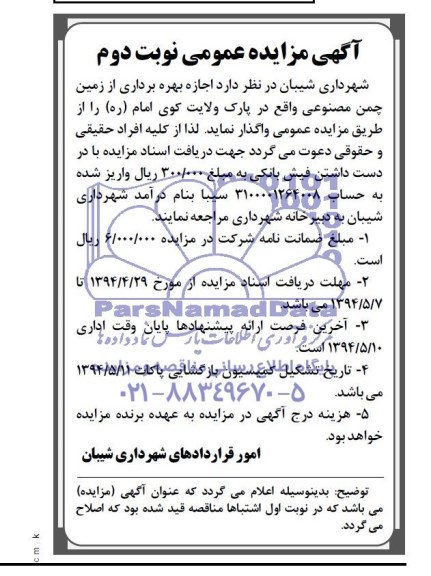 آگهی مزایده عمومی نوبت دوم
شهرداری شیبان در نظر دارد اجازه بهره برداری از زمین
چمن مصنوعی واقع در پارک ولایت کوی امام (ره) را از
طریق مزایده عمومی واگذار نماید. لذا از کلیه افراد حقیقی
و حقوقی دعوت می گردد جهت دریافت اسناد مزایده با در
دست داشتن فیش بانکی به مبلغ ۳۰۰/۰۰۰ ریال واریز شده
به حساب ۳۱۰۰۰۰۱۲۶۴۰۰۸ سیبا بنام درآمد شهرداری
شیبان به دبیرخانه شهرداری مراجعه نمایند.
۱- مبلغ ضمانت نامه شرکت در مزایده ۶/۰۰۰/۰۰۰ ریال
است.
۲- مهلت دریافت اسناد مزایده از مورخ ۱۳۹۴/۴/۲۹ تا
۱۳۹۴/۵/۷ می باشد.
ParsNamadData
۳- آخرین فرصت ارائه پیشنهادها پایان وقت اداری
۱۳۹۴/۵/۱۰ است.
۴- تاریخ تشکیل کمیسیون بازگشایی پاکات ۱۳۹۴/۵/۱۱
می باشد.
۰۲۱-۸۸۳۴۹۶۷۰-۵
۵- هزینه درج آگهی در مزایده به عهده برنده مزایده
خواهد بود.
امور قراردادهای شهرداری شیبان
توضیح: بدینوسیله اعلام می گردد که عنوان آگهی (مزایده)
می باشد که در نوبت اول اشتباها مناقصه قید شده بود که اصلاح
می گردد.